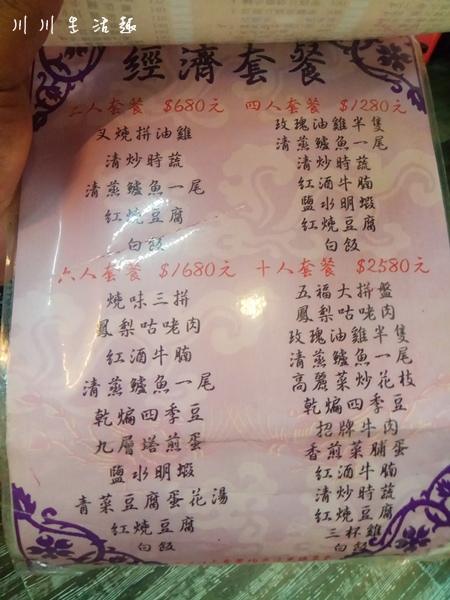 川川生活趣
經濟套餐
二人套餐 $680元
叉燒拼油雞
清炒時蔬
清蒸鱸魚一尾
紅燒豆腐
白飯
四人套餐 $1280元
玫瑰油雞半隻
清蒸鱸魚一尾
清炒時蔬
紅酒牛腩
鹽水明蝦
紅燒豆腐
白飯
六人套餐 $1680元
燒味三拼
鳳梨咕咾肉
紅酒牛腩
清蒸鱸魚一尾
乾煸四季豆
九層塔煎蛋
鹽水明蝦
青菜豆腐蛋花湯
紅燒豆腐
白飯
十人套餐 $2580元
五福大拼盤
鳳梨咕咾肉
玫瑰油雞半隻
清蒸鱸魚一尾
高麗菜炒花枝
乾煸四季豆
招牌牛肉
香煎菜脯蛋
紅酒牛腩
清炒時蔬
紅燒豆腐
三杯雞
白飯